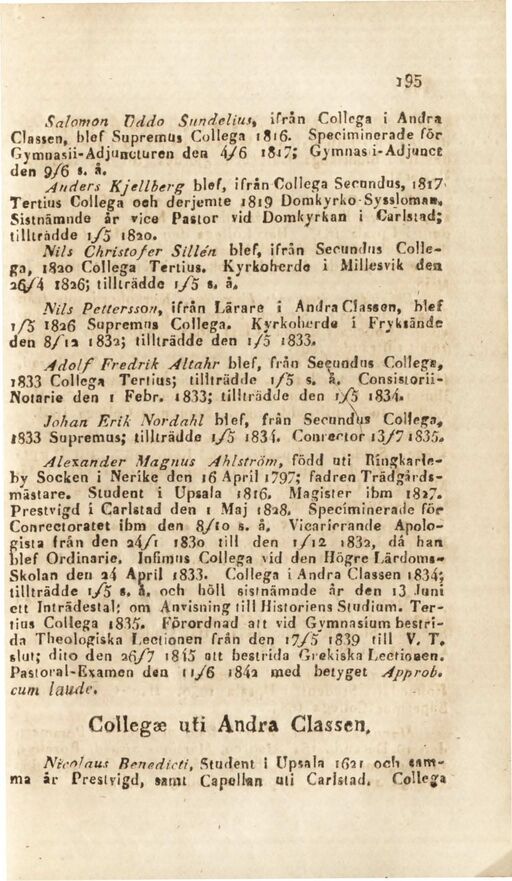 195
Salomon Uddo Sundelius, ifrån Collega i Andra
Classen, blef Supremus Collega 1816. Speciminerade för
Gymnasii-Adjuncturen den 4/6 1817; Gymnas i-Adjunct
den 9/6 s. å.
Anders Kjellberg blef, ifrån Collega Secundus, 1817
Tertius Collega och derjemte 1819 Domkyrko-Syssloman.
Sistnämnde år vice Pastor vid Domkyrkan i Carlstad;
tillträdde 1/5 1820.
Nils Christofer Sillén blef, ifrån Secundus Colle-
ga, 1820 Collega Tertius. Kyrkoherde i Millesvik den
26/4 1826; tillträdde 1/5 s. å.
Nils Pettersson, ifrån Lärare i Andra Classen, blef
1/5 1826 Supremus Collega. Kyrkoherde i Fryksände
den 8/12 1832; tillträdde den 1/5 1833.
Adolf Fredrik Altahr blef, från Secundus Collega,
1833 Collega Tertius; tillträdde 1/5 s. å. Consistorii-
Notarie den 1 Febr. 1833; tillträdde den 1/5 1834.
Johan Erik Nordahl blef, från Secundus Collega,
1833 Supremus; tillträdde 1/5 1834. Conrector 13/7 1835.
Alexander Magnus Ahlström, född uti Ringkarle-
by Socken i Nerike den 16 April 1797; fadren Trädgårds-
mästare. Student i Upsala 1816. Magister ibm 1827.
Prestvigd i Carlstad den 1 Maj 1828. Speciminerade för
Conrectoratet ibm den 8/10 s. å. Vicarierande Apolo-
gista från den 24/1 1830 till den 1/12 1832, då han
blef Ordinarie. Infimus Collega vid den Högre Lärdoms-
Skolan den 24 April 1833. Collega i Andra Classen 1834;
tillträdde 1/5 s. å. och höll sistnämnde år den 13 Juni
ett Inträdestal: om Anvisning till Historiens Studium. Ter-
tius Collega 1835. Förordnad att vid Gymnasium bestri-
da Theologiska Lectionen från den 17/5 1839 till V. T.
slut; dito den 26/7 1845 att bestrida Grekiska Lectionen.
Pastoral-Examen den 11/6 1842 med betyget Approb.
cum laude.
Collegæ uti Andra Classen.
Nicolaus Benedicti, Student i Upsala 1621 och sam-
ma år Prestvigd, samt Capellan uti Carlstad. Collega